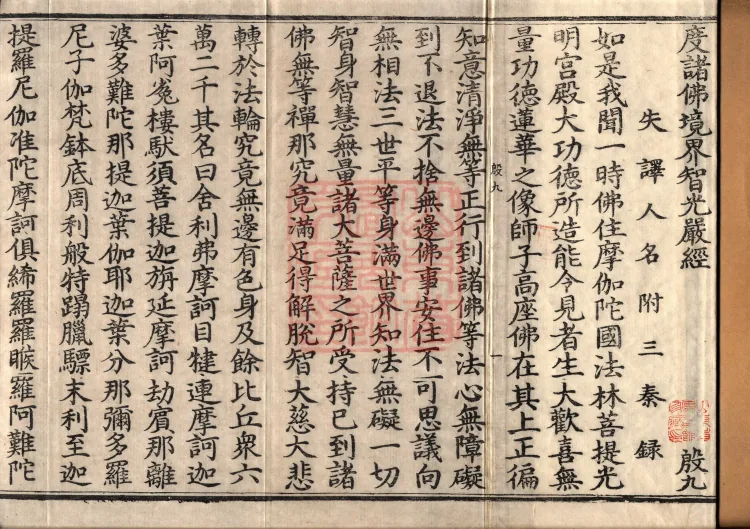 度諸佛境界智光嚴經
殷九
失譯人名附三秦録
如是我聞一時佛住摩伽陀國法林菩提光
明宮殿大功德所造能令見者生大歡喜無
量功德蓮華之像師子高座佛在其上正徧
殷九
一
知意清淨無等正行到諸佛等法心無障礙
到不退法不捨無邊佛事安住不可思議向
無相法三世平等身滿世界知法無礙一切
智身智慧無量諸大菩薩之所受持已到諸
佛無等禪那究竟滿足得解脫智大慈大悲
轉於法輪究竟無邊有色身及餘比丘衆六
萬二千其名曰舍利弗摩訶目犍連摩訶迦
葉阿㝹樓馱須菩提迦旃延摩訶劫賓那離
婆多難陀那提迦葉伽耶迦葉分那彌多羅
尼子伽梵鉢底周利般特蹋臘驃末利至迦
提羅尼伽准陀摩訶俱絺羅羅睺羅阿難陀